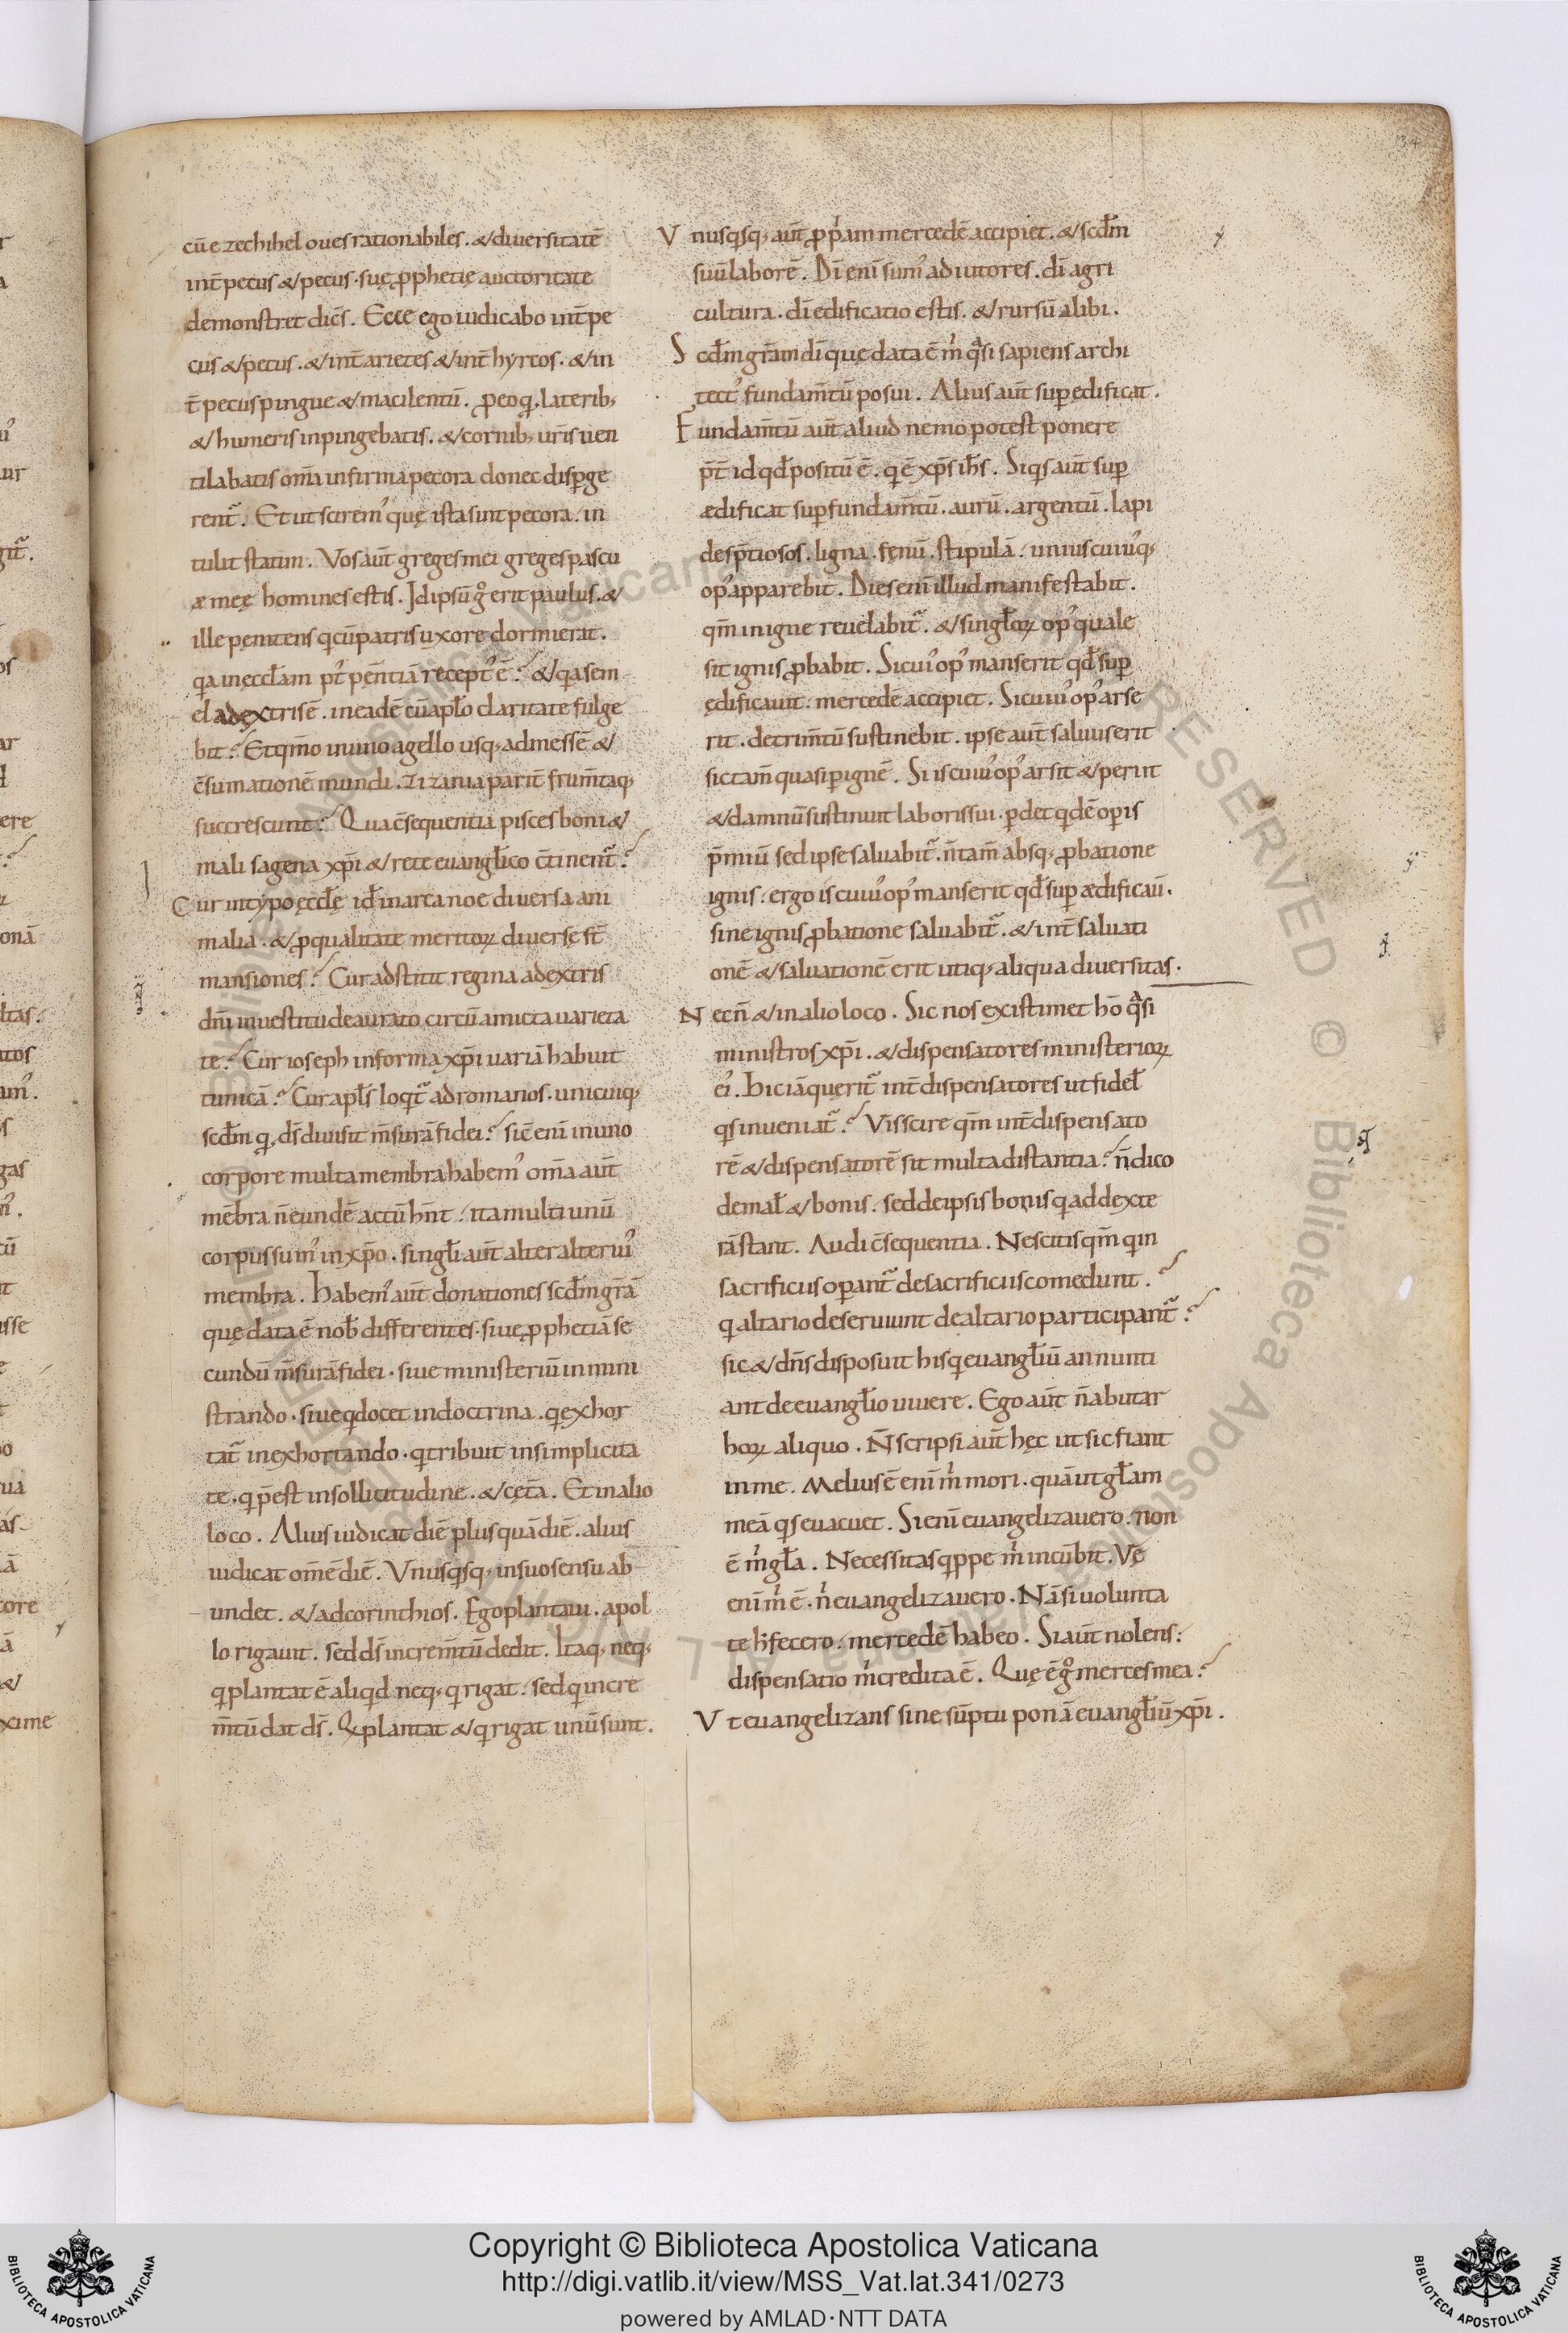 cū ezechihel oues rationabiles. & diuersitatē
int̄ pecus & pecus. suę ꝓphetię auctoritate
demonstret dic̄s. Ecce ego iudicabo int̄ pe
cus & pecus. & int̄ arietes & int̄ hyrcos. & in
t̄ pecus pingue & macilentū. ꝓeo qđ lateribꝫ
& humeris inpingebatis. & cornibꝫ ur̄is uen
tilabatis om̄a infirma pecora donec disꝑge
rent᷑. Et ut sciremꝰ quę ista sint pecora. in
tulit statim. Vos aut̄ greges mei greges pascu
æ meę homines estis. Idipsū g̊ erit paulus. &
ille pęnitens q̇ cū patris uxore dormierat.
q̇a in ęcclam p̄t pęn̄tiā receptꝰ ē? & q̇a sem
el adextris ē. in eadē cū apl̄o claritate fulge
bit? Et qm̄o in uno agello usqꝫ ad messē &
c̄sumationē mundi. zizania parit̄ frum̄taqꝫ
succrescunt? Qua c̄sequentia pisces boni &
mali sagena xp̄i & rete euangl̄ico c̄tinent᷑?
Cur in typo ęccl̄ę id in arca noe diuersa ani
malia. & ꝓ qualitate meritoꝝ diuersę st̄
mansiones? Cur adstitit regina adextris
dn̄i in uestitu deaurato circū amicta uarieta
te? Cur ioseph in forma xp̄i uariā habuit
tunicā? Cur apl̄s loqt᷑ ad romanos. unicuiqꝫ
scd̄m qđ ds̄ diuisit m̄surā fidei? sic̄ eni in uno
corpore multa membra habemꝰ om̄a aut̄
mēbra n̄ eundē actū hn̄t. ita multi unū
corpus sumꝰ in xp̄o. singl̄i aut̄ alter alteriꝰ
membra. Habemꝰ aut̄ donationes scd̄m gr̄ā
quę data ē nob̄ differentes. siue ꝓphetiā se
cundū m̄surā fidei. siue ministeriū in mini
strando. siue q̇ docet in doctrina. q̇ exhor
tat᷑ in exhortando. q̇ tribuit in simplicita
te. q̇ p̄est in sollicitudine. & cęt̄a. Et in alio
loco. Alius iudicat diē plus quā diē. alius
iudicat om̄ē diē. Vnusq̇sqꝫ in suo sensu ab
undet. & ad corinthios. Ego plantaui. apol
lo rigauit. sed ds̄ increm̄tū dedit. Itaqꝫ neqꝫ
q̇ plantat ē aliqd neqꝫ q̇ rigat. sed q̇ incre
m̄tū dat ds̄. Q̇ plantat & q̇ rigat unū sunt.
Vnusq̇sqꝫ aut̄ ꝓṗam mercedē accipiet. & scd̄m
suū laborē. Di eni sumꝰ adiutores. di agri
cultura. di edificatio estis. & rursū alibi.
Scd̄m gr̄am di quę data ē ṁ q̊si sapiens archi
tectꝰ fundam̄tū posui. Alius aut̄ suꝑedificat.
Fundam̄tū aut̄ aliud nemo potest ponere
p̄t id qd̄ positū ē. q̇ ē xp̄s ih̄s. Si q̇s aut̄ suꝑ
ædificat suꝑ fundam̄tū. aurū. argentū. lapi
des p̄tiosos. ligna. fęnū. stipulā. uniuscuiuꝰqꝫ
opꝰ apparebit. Dies enī illud manifestabit.
qm̄ in igne reuelabit᷑. & singl̄oꝝ opꝰ quale
sit ignis ꝓbabit. Si cuiꝰ opꝰ manserit qd̄ suꝑ
ędificauit. mercedē accipiet. Si cuiuꝰ opꝰ arse
rit. detrim̄tū sustinebit. ipse aut̄ saluus erit
sic tam̄ quasi ꝑ ignē. Si is cuiuꝰ opꝰ arsit & periit
& damnū sustinuit laboris sui. ꝑdet q̇dē oꝑis
p̄miū sed ipse saluabit᷑. n̄ tam̄ absqꝫ ꝓbatione
ignis. ergo is cuiuꝰ opꝰ manserit qd̄ suꝑ ædificaū.
sine ignis ꝓbatione saluabit᷑. & int̄ saluati
onē & saluationē erit utiqꝫ aliqua diuersitas.
Necn̄ & in alio loco. Sic nos existimet hō q̊si
ministros xp̄i. & dispensatores ministerioꝝ
eiꝰ. Hic iā querit᷑ int̄ dispensatores ut fidel̄
q̇s inueniat᷑? Vis scire qm̄ int̄ dispensato
rē & dispensatorē sit multa distantia? n̄ dico
de mal̄ & bonis. sed de ipsis bonis q̇ ad dexte
rā stant. Audi c̄sequentia. Nescitis qm̄ q̇ in
sacrificiis oꝑant᷑ de sacrificiis comedunt.?
q̇ altario deseruiunt de altario participant᷑?
sic & dn̄s disposuit his q̇ euangl̄iū annunti
ant de euangl̄io uiuere. Ego aut̄ n̄ abutar
hoꝝ aliquo. N̄ scripsi aut̄ hęc ut sic fiant
in me. Melius ē eni ṁ mori. quā ut gl̄am
meā q̇s euacuet. Si eni euangelizauero. non
ē ṁ gl̄a. Necessitas q̇ppe ṁ incūbit. Vę
eni ṁ ē. n̄ euangelizauero. Nā si uolunta
te h̄ fecero. mercedē habeo. Si aut̄ nolens.
dispensatio ṁ credita ē. Quę ē g̊ merces mea?
Vt euangelizans sine sūptu ponā euangl̄iū xp̄i.
Copyright © Biblioteca Apostolica Vaticana
http://digi.vatlib.it/view/MSS_Vat.lat.341/0273
powered by AMLAD·NTT DATA
BIBLIOTECA APOSTOLICA VATICANA
BIBLIOTECA APOSTOLICA VATICANA